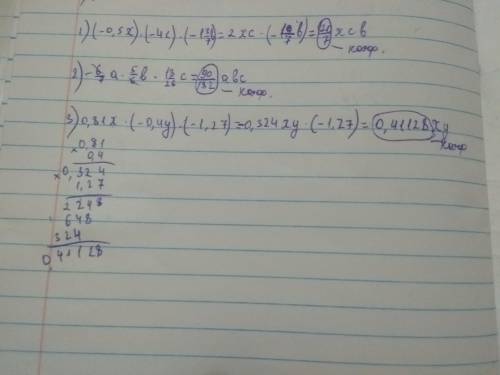 1) (-0,5x)·(-4c)·(-13/7 b) = 2xc·(-13/7 b) = 26/7 xcb
коэф.
2) -6/7 a · 5/6 b · 13/26 c = 90/182 abc
коэф.
3) 0,81x·(-0,4y)·(-1,27) = 0,324xy·(-1,27) = 0,41128xy
коэф
×0,81
0,4
×0,324
1,27
2248
648
324
0,41128